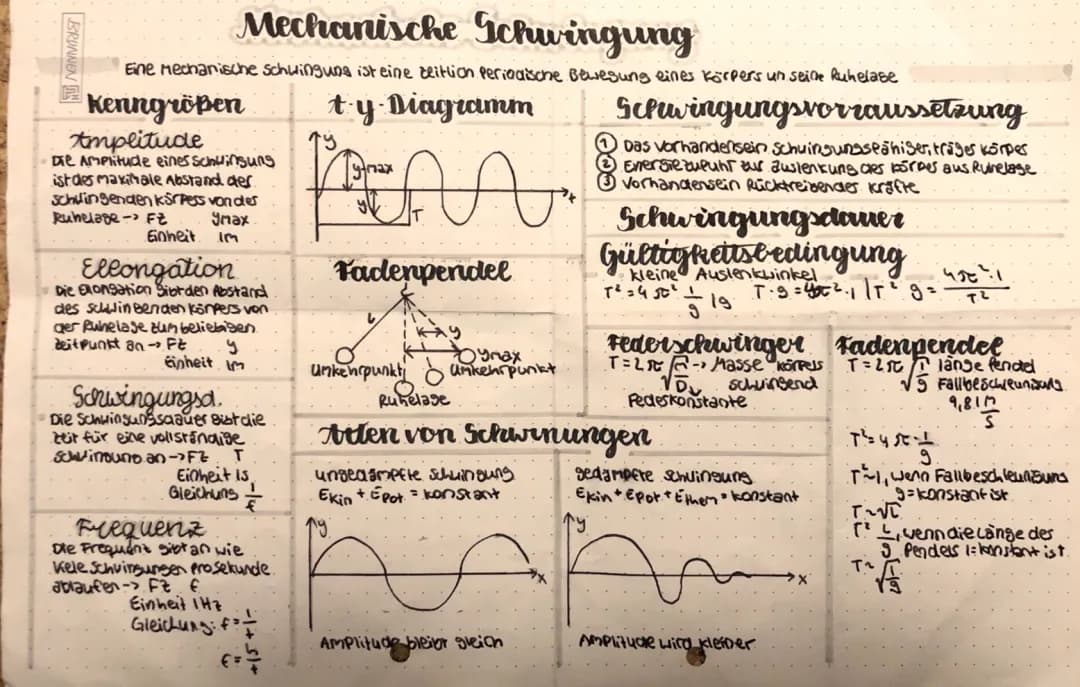 Mechanische Schwingung
BRUNNEN
Eine Mechanische Schwingung ist eine zeitlich Periodische Bewegung eines Körpers un seine Ruhelage
Kenngrößen
Amplitude
Die Amplitude eines Schwingung
ist des maximale Abstand des
schwingenden Körpess von des
Ruhelage -> FZ ymax
Einheit 1m
Ellongation
Die Elongation gibt den Abstand
des schwingenden Körpers von
der Ruhelage zum beliebigen
Zeitpunkt an -> FZ y
Einheit 1m
Schwingungsd.
Die Schwingungsdauer gibt die
Zeit für eine vollständige
Schwingung an -> FZ T
Einheit 1s
Gleichung 1/f
Frequenz
Die Frequenz gibt an wie
viele Schwingungen pro Sekunde
ablaufen -> FZ f
Einheit 1Hz
Gleichung: f = 1/t
f = n/t
t-y-Diagramm
y
ymax
y
T
x
Fadenpendel
l
y
ymax
Umkehrpunkt
Umkehrpunkt
Ruhelage
Schwingungsvorraussetzung
① Das Vorhandensein schwingungsfähiger, träges Körpes
② Energiezufuhr zur Auslenkung des Körpes aus Ruhelage
③ Vorhandensein Rücktreibender Kräfte
Schwingungsdauer
Gültigkeitsbedingung
kleine Auslenkwinkel
T² = 4π² 1/g |g T · g = 4π² · l | T² g = 4π² · l / T²
Federschwinger
T = 2π √m/D -> Masse Körpess
schwingend
Federkonstante
Fadenpendel
T = 2π √l/g länge Pendel
Fallbeschleunigung
9,81 m/s
T² = 4π · 1/g
T² ~ l, wenn Fallbeschleunigung
g = konstant ist
T ~ √l
T² L/g, wenn die Länge des
Pendels l = konstant ist
T ~ √1/g
Arten von Schwinungen
ungedämpfte Schwingung
Ekin + Epot = konstant
y
x
Amplitude bleibt gleich
gedämpfte Schwingung
Ekin + Epot + Ethem = konstant
y
x
Amplitude wird kleiner